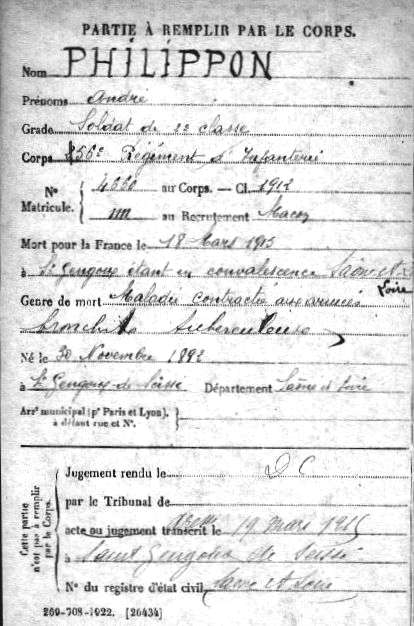 PARTIE À REMPLIR PAR LE CORPS.
Nom PHILIPPON
Prénoms André
Grade Soldat de 2e classe
Corps 56e Régiment d'Infanterie
N° Matricule. { 4660 au Corps. — Cl. 1912
au Recrutement Macon
Mort pour la France le 18 Mars 1915
à St Gengoux étant en convalescence Saône et Loire
Genre de mort Maladie contractée aux armées
bronchite tuberculeuse
Né le 30 Novembre 1892
à St Gengoux de Scissé Département Saône et Loire
Arrt municipal (pr Paris et Lyon), à défaut rue et N°. }
Cette partie n'est pas à remplir par le Corps. {
Jugement rendu le D C
par le Tribunal de
acte ou jugement transcrit le 19 mars 1915
à Saint Gengoux de Scissé
N° du registre d'état civil Saône et Loire
269-708-1922. [26434]